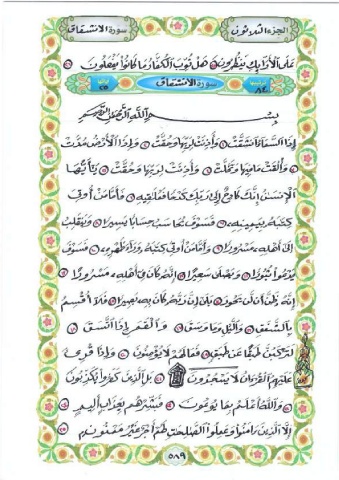 سورة الانشقاق
الجزء الثلاثون
على الأرائك ينظرون هل ثوب الكفار ما كانوا يفعلون
سورة الانشقاق
بسم الله الرحمن الرحيم
إذا السماء انشقت وأذنت لربها وحقت وإذا الأرض مدت
وألقت ما فيها وتخلت وأذنت لربها وحقت يأيها
الإنسان إنك كادح إلى ربك كدحا فملاقيه فأما من أوتي
كتابه بيمينه فسوف يحاسب حسابا يسيرا وينقلب
إلى أهله مسرورا وأما من أوتي كتابه وراء ظهره فسوف
يدعوا ثبورا ويصلى سعيرا إنه كان في أهله مسرورا
إنه ظن أن لن يحور بلى إن ربه كان به بصيرا فلا أقسم
بالشفق والليل وما وسق والقمر إذا اتسق
لتركبن طبقا عن طبق فما لهم لا يؤمنون وإذا قرئ
عليهم القرءان لا يسجدون بل الذين كفروا يكذبون
والله أعلم بما يوعون فبشرهم بعذاب أليم
إلا الذين ءامنوا وعملوا الصالحات لهم أجر غير ممنون
٥٨٩